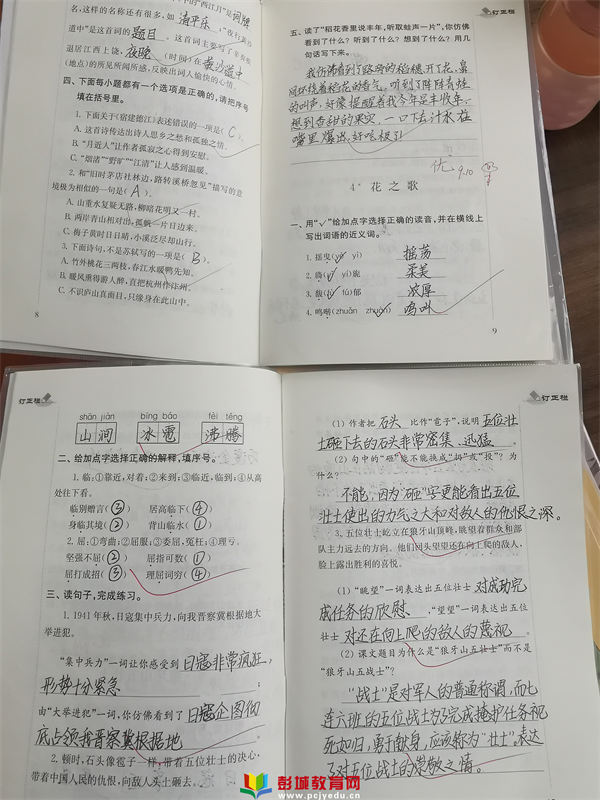 名,这样的名称还有很多,如 清平乐 。"夜行黄沙
道中"是这首词的 题目 。这首词主要写了辛弃疾
退居江西上饶, 夜晚 (时间)在 黄沙道中
(地点)的所见所闻所感,反映出词人愉快的心情。
四、下面每小题都有一个选项是正确的,请把序号
填在括号里。
1. 下面关于《宿建德江》表述错误的一项是( C )。
A. 这首诗传达出诗人思乡之愁和孤独之情。
B. "月近人"让作者孤寂之心得到安慰。
C. "烟渚""野旷""江清"让人感到温暖。
2. 和"旧时茅店社林边,路转溪桥忽见"描写的意
境极为相似的一句是( A )。
A. 山重水复疑无路,柳暗花明又一村。
B. 两岸青山相对出,孤帆一片日边来。
C. 梅子黄时日日晴,小溪泛尽却山行。
3. 下面诗句,不是苏轼写的一项是( B )。
A. 竹外桃花三两枝,春江水暖鸭先知。
B. 暖风熏得游人醉,直把杭州作汴州。
C. 不识庐山真面目,只缘身在此山中。
8
订正栏
五、读了"稻花香里说丰年,听取蛙声一片",你仿佛
看到了什么?听到了什么?想到了什么?用几
句话写下来。
我仿佛看到了路旁的稻穗开了花,鼻
间环绕着稻花的香气。听到了阵阵青蛙
的叫声,好像提醒着我今年是丰收年。
想到香甜的果实,一口下去汁水在
嘴里爆出,好吃极了!
优
9.10
4* 花之歌
一、用"✓"给加点字选择正确的读音,并在横线上
写出词语的近义词。
1. 摇曳(yè yì) 摇荡
2. 旖(yǐ yí)旎 柔美
3. 馥(fù fú)郁 浓厚
4. 鸣啭(zhuǎn zhuàn) 鸣叫
9
订正栏
shān jiàn bīng báo fèi téng
山涧 冰雹 沸腾
二、给加点字选择正确的解释,填序号。
1. 临:①靠近,对着;②来到;③临近,临到;④从高
处往下看。
临别赠言( ③ ) 居高临下( ④ )
身临其境( ② ) 背山临水( ① )
2. 屈:①弯曲;②屈服;③委屈,冤枉;④理亏。
坚强不屈( ② ) 屈指可数( ① )
屈打成招( ③ ) 理屈词穷( ④ )
三、读句子,完成练习。
1. 1941年秋,日寇集中兵力,向我晋察冀根据地大
举进犯。
"集中兵力"一词让你感受到 日寇非常疯狂,
形势十分紧急 ;
由"大举进犯"一词,你仿佛看到了 日寇企图彻
底占领我晋察冀根据地 。
2. 顿时,石头像雹子一样,带着五位壮士的决心,
带着中国人民的仇恨,向敌人头上砸去。
订正栏
(1) 作者把 石头 比作"雹子",说明 五位壮
士砸下去的石头非常密集、迅猛 。
(2) 句中的"砸"能不能换成"扔"或"投"?为
什么?
不能,因为"砸"字更能看出五位
壮士使出的力气之大和对敌人的仇恨之深。
3. 五位壮士屹立在狼牙山顶峰,眺望着群众和部
队主力远去的方向。他们回头望望还在向上爬的敌人,
脸上露出胜利的喜悦。
(1) "眺望"一词表达出五位壮士 对成功完
成任务的欣慰 ,"望望"一词表达出五位
壮士 对还在向上爬的敌人的蔑视 。
(2) 课文题目为什么是"狼牙山五壮士"而不是
"狼牙山五战士"?
"战士"是对军人的普通称谓,而七
连六班的五位战士为了完成掩护任务视
死如归,勇于献身,应该称为"壮士"。表达
了对五位战士的崇敬之情。
彭城教育网
www.pcjyedu.cn